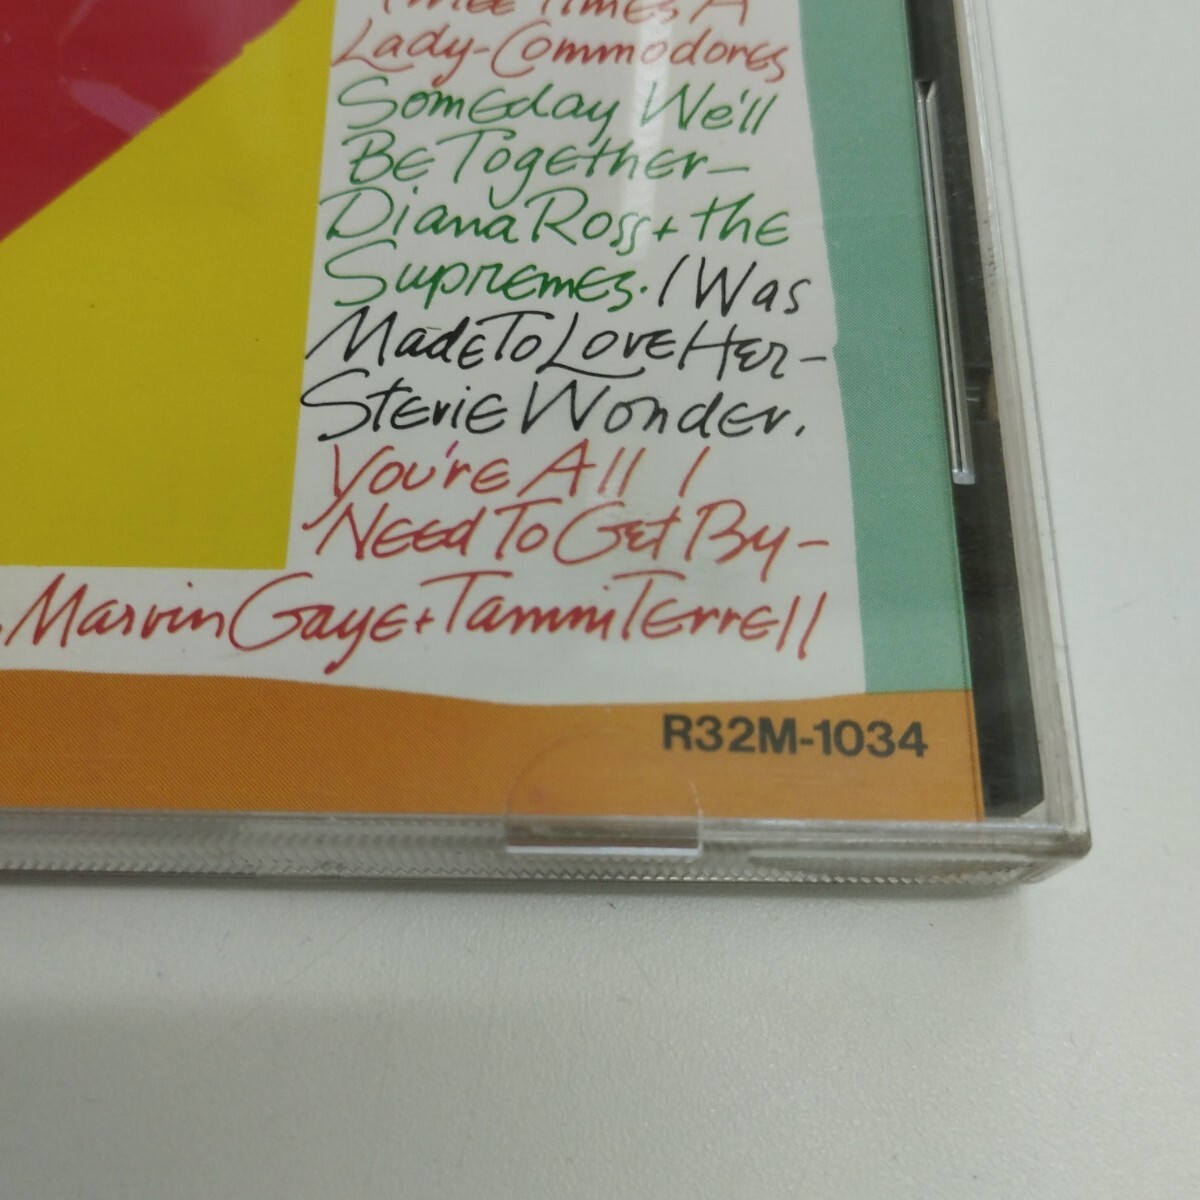 Three Times A
Lady-Commodores
Someday We'll
Be Together-
Diana Ross + the
Supremes. I Was
Made To Love Her-
Stevie Wonder.
You're All I
Need To Get By-
Marvin Gaye + Tammi Terrell
R32M-1034